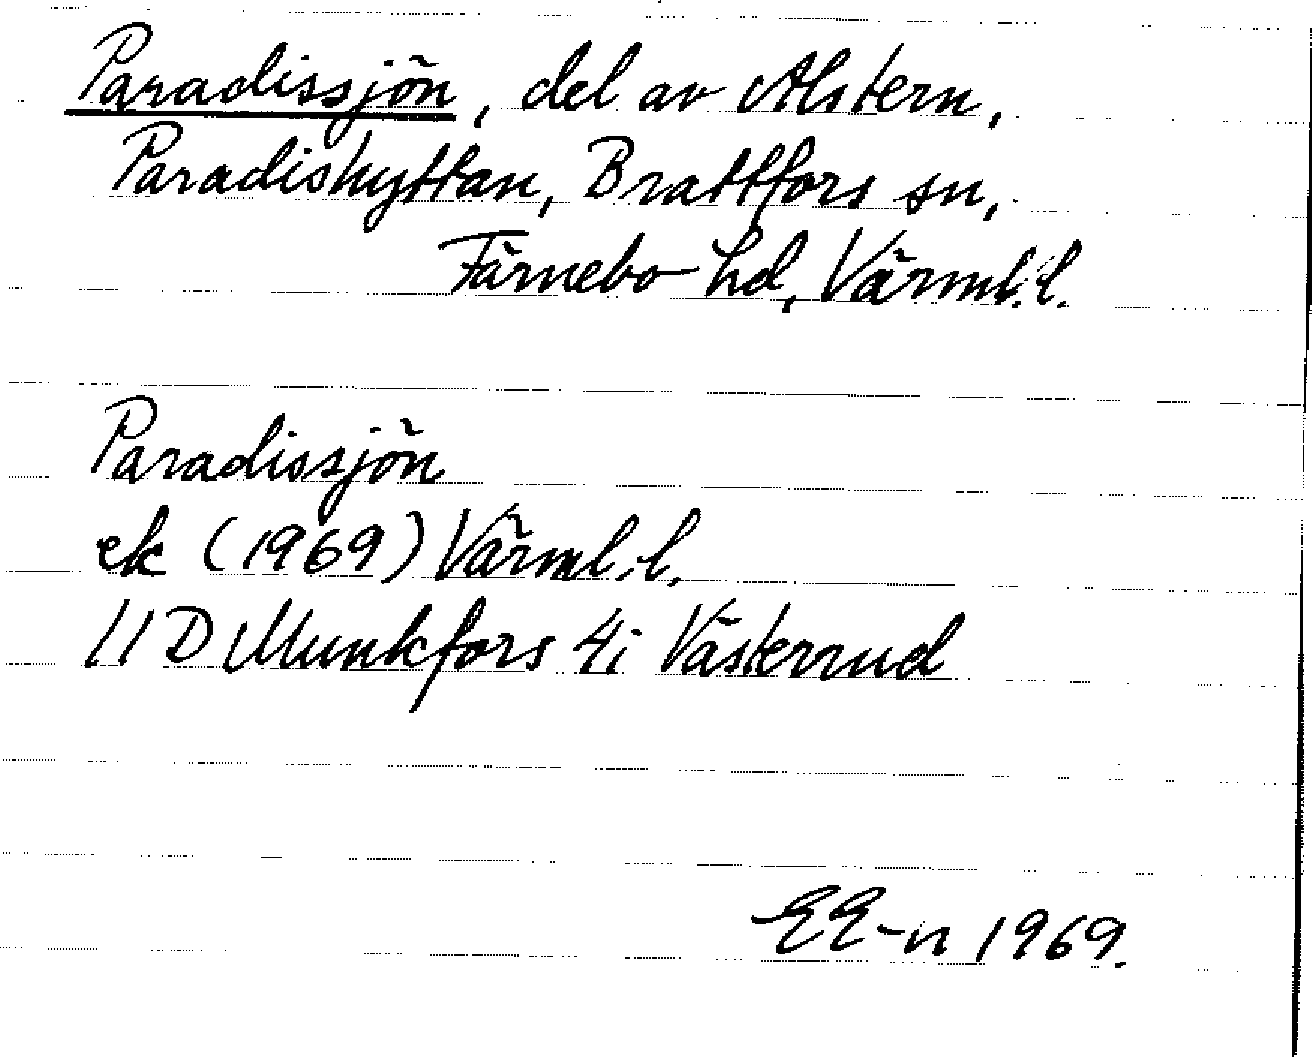 Paradissjön, del av Alstern,
Paradishyttan, Brattfors sn,
Färnebo hd, Värml.l.
Paradissjön
ek (1969) Värml.l.
11D Munkfors 4i Västerrud
EE-n 1969.